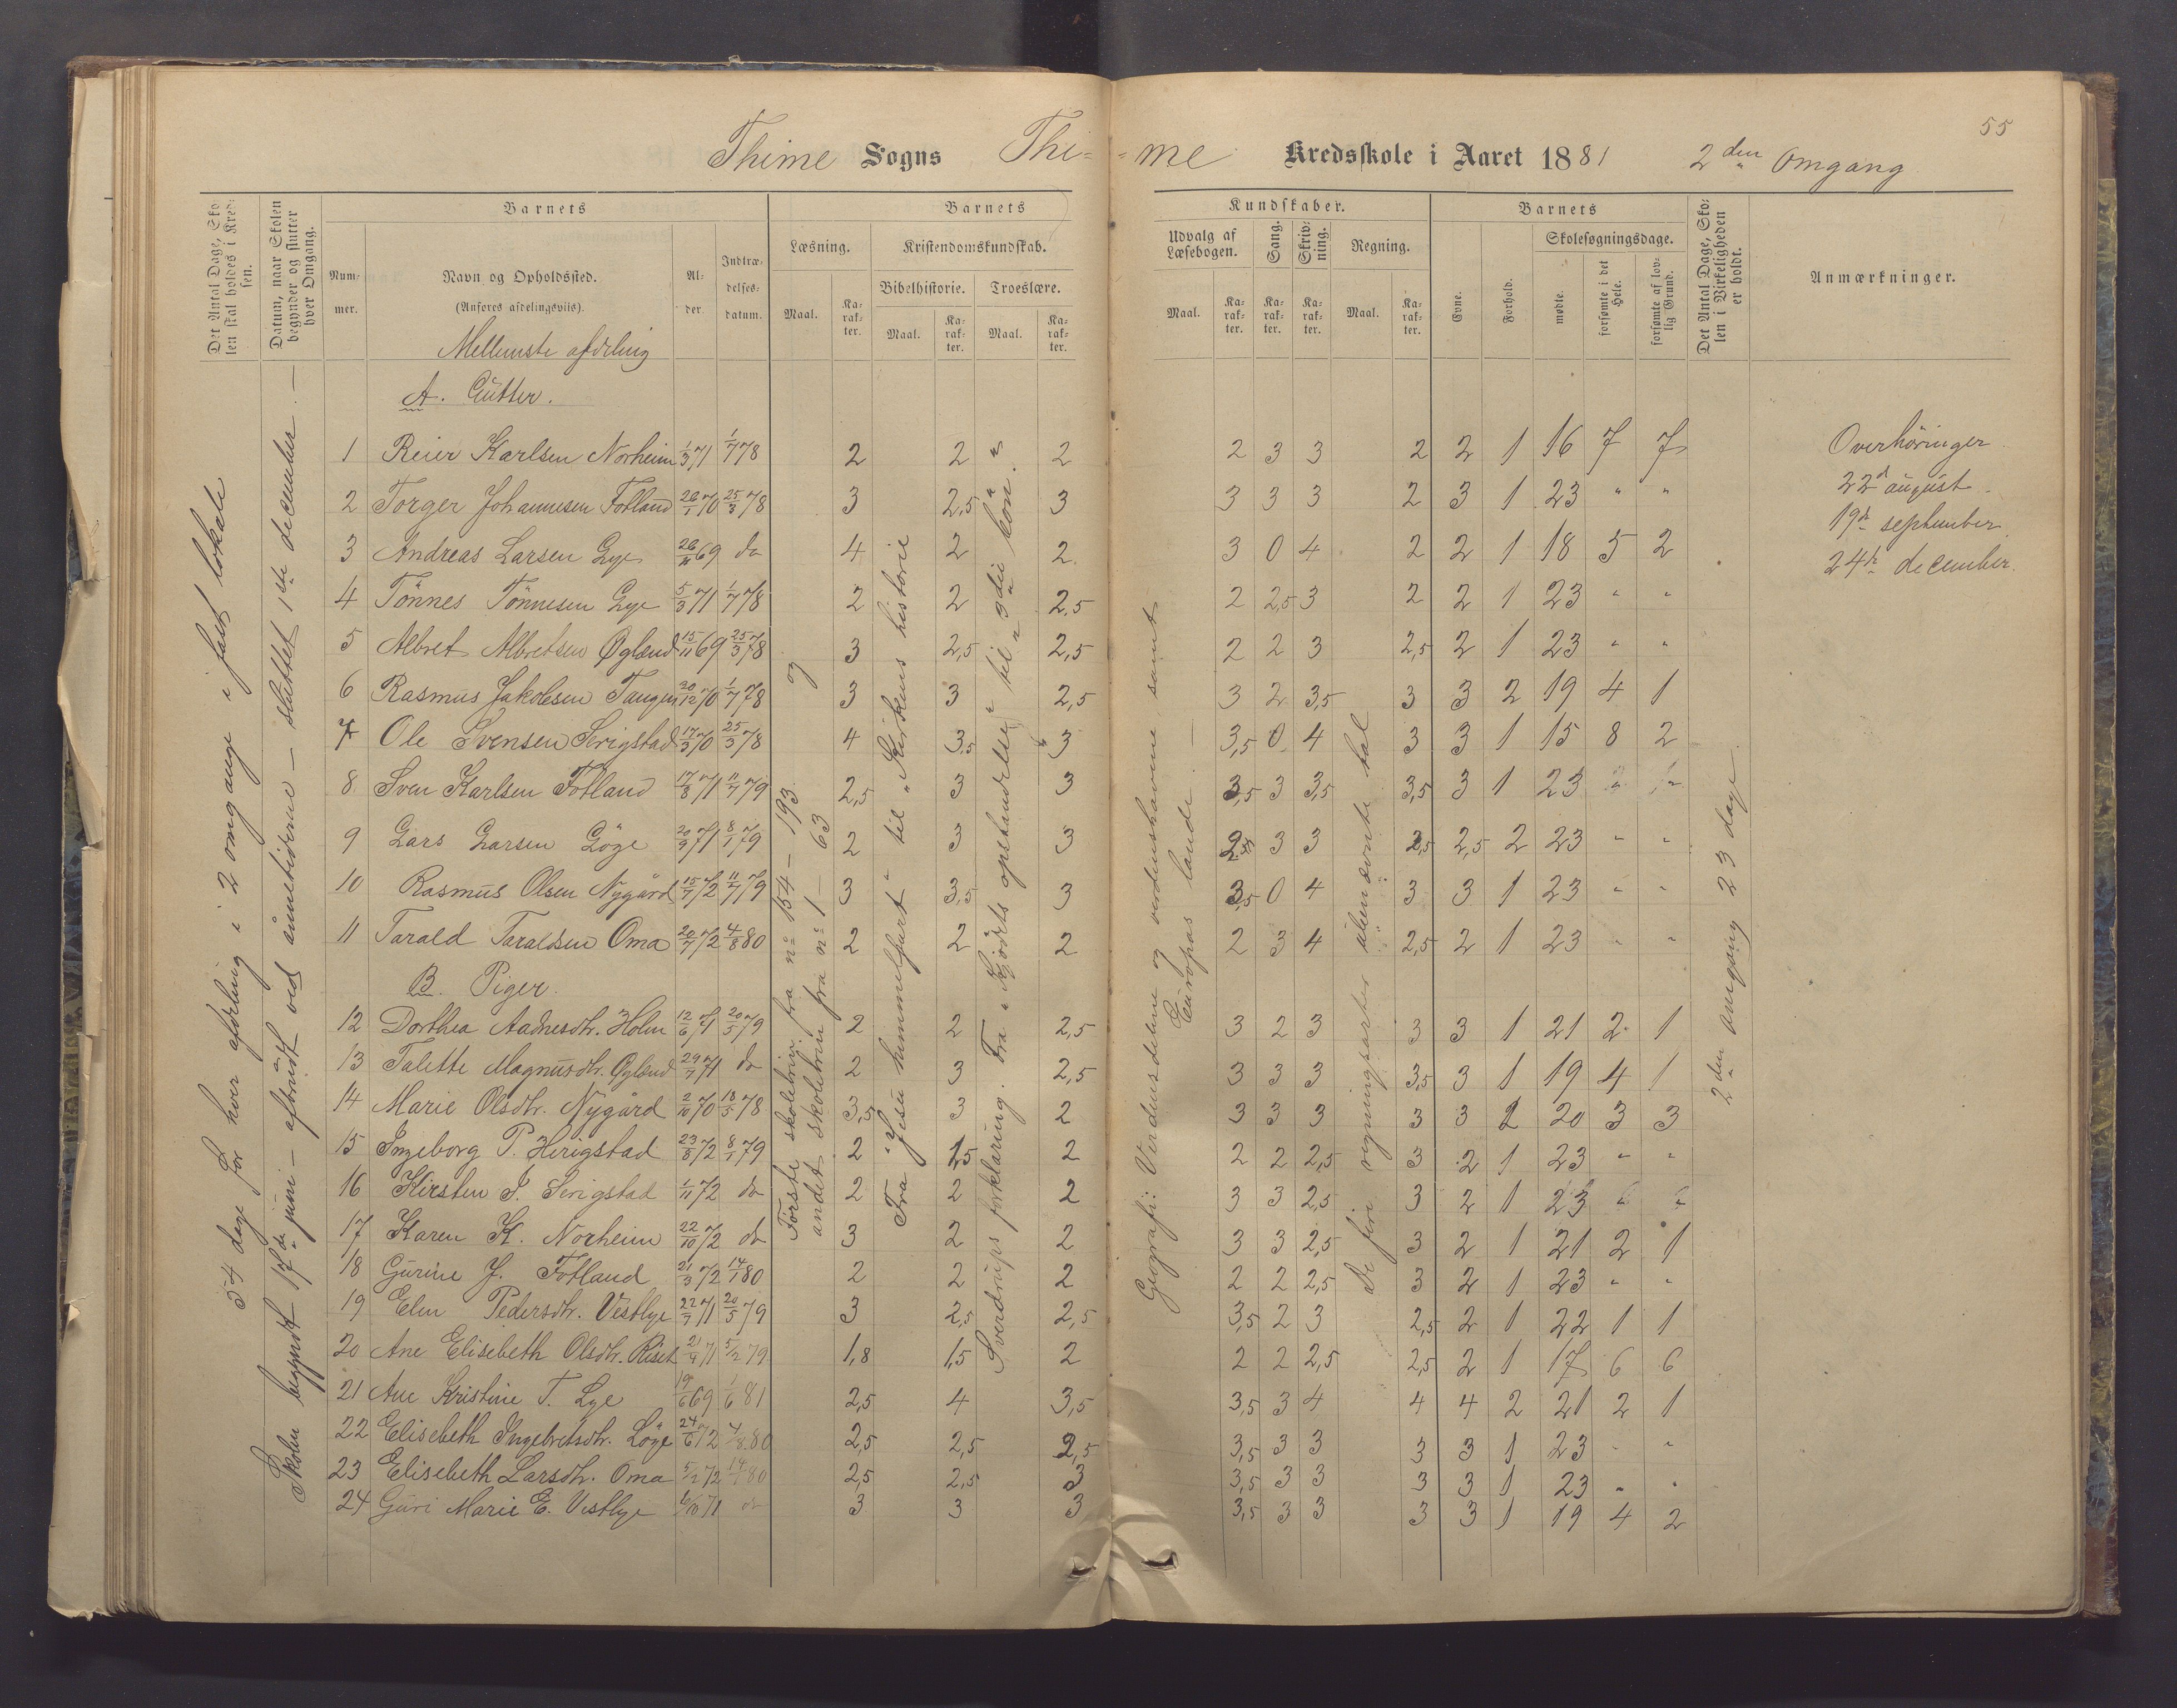 55
Thime Sogns Thi- -me Kredsskole i Aaret 1881 2den Omgang
Det Antal Dage, Skolen skal holdes i Kredsen.
Datum, naar Skolen begynder og slutter hver Omgang.
Barnets
Nummer.
Navn og Opholdssted.
(Anføres afdelingsviis).
Alder.
Indtrædelsesdatum.
Barnets Kundskaber.
Læsning.
Maal.
Karakter.
Kristendomskundskab.
Bibelhistorie.
Maal.
Karakter.
Troeslære.
Maal.
Karakter.
Udvalg af Læsebogen.
Maal.
Karakter.
Sang.
Karakter.
Skrivning.
Karakter.
Regning.
Maal.
Karakter.
Barnets
Evne.
Forhold.
Skolesøgningsdage.
mødte.
forsømte i det Hele.
forsømte af lovlig Grund.
Det Antal Dage, Skolen i Virkeligheden er holdt.
Anmærkninger.
54 dage for hver afdeling i 2 omgange i fast lokale
Skolen begyndt 17de juni – afbrudt ved ånnetiderne – sluttet 1ste december. –
Første skoletrin fra no 154 – 193 og
andet skoletrin fra no 1 – 63
Fra "Jesu himmelfart" til "Kirkens historie
Sverdrups forklaring. Fra "Kjødets opstandelse" til "3die bøn."
Geografi: Verdensdelene og verdenshavene samt
Europas lande. –
De fire regningsarter i ubenævnte tal
2den omgang 23 dage
Overhøringer
22d august
19de september
24de december.
Mellemste afdeling
A. Gutter.
1 Reier Karlsen Norheim 1/3 71 1/7 78 2 2 2 2 3 3 2 2 1 16 7 7
2 Torger Johannesen Fotland 26/1 70 25/3 78 3 2,5 3 3 3 3 2 3 1 23 " "
3 Andreas Larsen Lye 26/11 69 do 4 2 2 3 0 4 2 2 1 18 5 2
4 Tönnes Tönnesen Lye 5/3 71 1/7 78 2 2 2,5 2 2,5 3 2 2 1 23 " "
5 Albret Albretsen Øglænd 15/11 69 25/3 78 3 2,5 2,5 2 2 3 2,5 2 1 23 " "
6 Rasmus Jakobsen Tangen 20/12 70 1/7 78 3 3 2,5 3 2 3,5 3 3 2 19 4 1
7 Ole Svensen Serigstad 17/3 70 25/3 78 4 3,5 3 3,5 0 4 3 3 1 15 8 2
8 Sven Karlsen Fotland 17/8 71 11/7 79 2,5 3 3 3,5 3 3,5 3,5 3 1 23 " "
9 Lars Larsen Löge 20/9 71 8/1 79 2 3 3 2,5 3 3 2,5 2,5 2 23 " "
10 Rasmus Olsen Nygård 15/7 72 11/7 79 3 3,5 3 3,5 0 4 3 3 1 23 " "
11 Tarald Taraldsen Oma 20/7 72 4/8 80 2 2 2 2 3 4 2,5 2 1 23 " "
B. Piger.
12 Dorthea Aadnesdtr. Holen 12/6 71 20/5 79 2 2 2,5 3 2 3 3 3 1 21 2 1
13 Talette Magnusdtr. Øglænd 29/7 71 do 2 3 2,5 3 3 3 3,5 3 1 19 4 1
14 Marie Olsdtr. Nygård 2/10 70 13/5 78 3,5 3 2 3 3 3 3 3 2 20 3 3
15 Ingeborg P. Herigstad 23/8 72 8/1 79 2 1,5 2 2 2 2,5 3 2 1 23 " "
16 Kirsten J. Serigstad 1/11 72 do 2 2 2 3 3 2,5 3 2 1 23 " "
17 Karen K. Norheim 22/10 72 do 3 2 2 3 3 2,5 3 2 1 21 2 1
18 Gurine J. Fotland 21/3 72 14/1 80 2 2 2 2 2 2,5 3 2 1 23 " "
19 Elen Pedersdtr. Vestlye 22/7 71 20/5 79 3 2,5 2,5 3,5 2 3 2,5 2 1 22 1 1
20 Ane Elisebeth Olsdtr. Riset 21/9 71 5/2 79 1,8 1,5 2 2 2 2,5 2,5 2 1 17 6 6
21 Ane Kristine T. Lye 19/6 69 1/6 81 2,5 4 3,5 3,5 3 4 4 4 2 21 2 1
22 Elisebeth Ingebretsdtr. Löge 24/6 72 4/8 80 2,5 2,5 2,5 3,5 3 3 3 3 1 23 " "
23 Elisebeth Larsdtr. Oma 5/2 72 14/1 80 2,5 2,5 3 3,5 3 3 3 3 1 23 " "
24 Guri Marie E. Vestlye 6/10 71 do 3 3 3 3,5 3 3 3 3 1 19 4 2